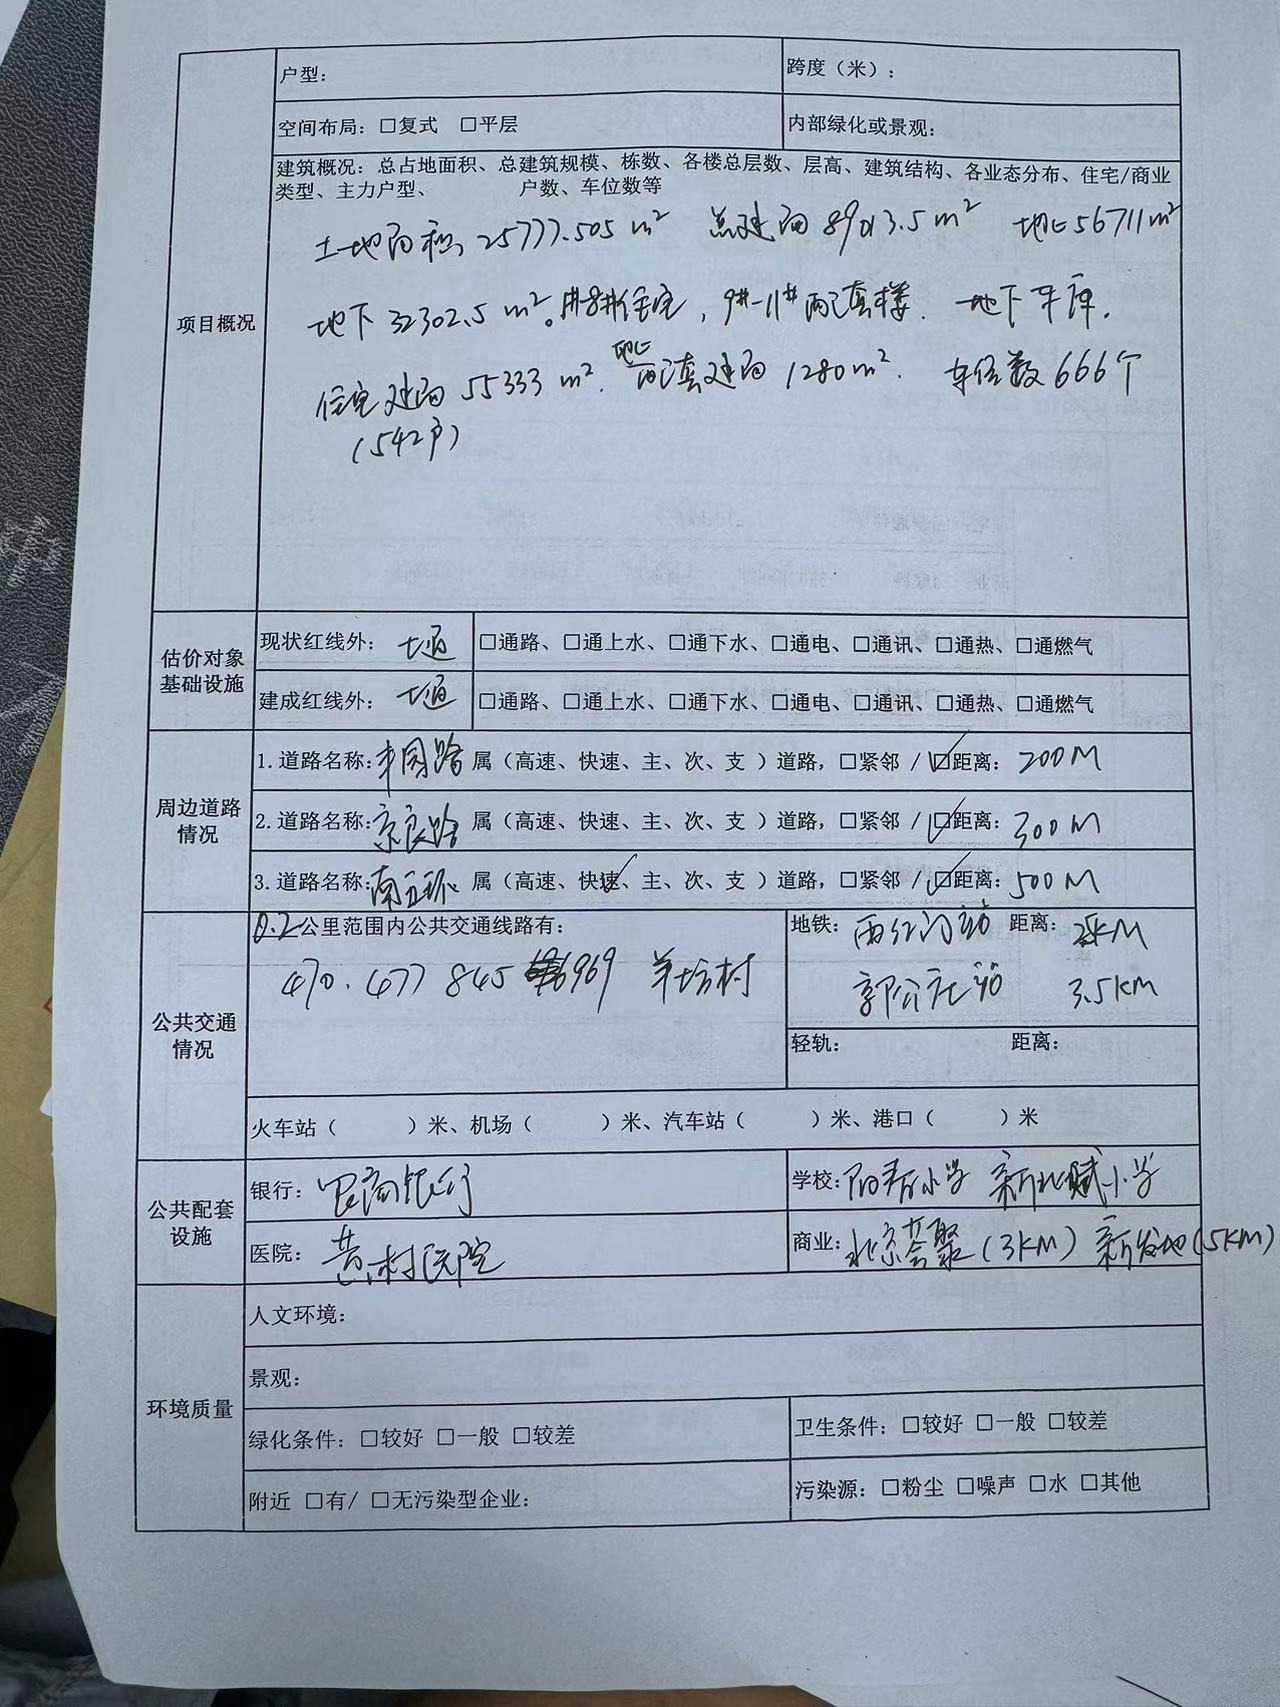 户型：
跨度（米）：
空间布局：□复式 □平层
内部绿化或景观：
建筑概况：总占地面积、总建筑规模、栋数、各楼总层数、层高、建筑结构、各业态分布、住宅/商业
类型、主力户型、 户数、车位数等
项目概况
土地面积 25777.505 m² 总建面 89013.5 m² 地上56711m²
地下 32302.5 m²。1#-8#住宅，9#-11#配套楼. 地下车库.
地上
住宅建面 55333 m². 配套建面 1280m². 车位数 666个
(542户)
估价对象
基础设施
现状红线外： 七通 □通路、□通上水、□通下水、□通电、□通讯、□通热、□通燃气
建成红线外： 七通 □通路、□通上水、□通下水、□通电、□通讯、□通热、□通燃气
周边道路
情况
1.道路名称：丰园路 属（高速、快速、主、次、支 ）道路，□紧邻 / ☑距离： 200M
2.道路名称：京良路 属（高速、快速、主、次、支 ）道路，□紧邻 / ☑距离： 300M
3.道路名称：南五环 属（高速、快速✓、主、次、支 ）道路，□紧邻 / ☑距离：500M
公共交通
情况
0.2公里范围内公共交通线路有：
470. 477 845 969 羊坊村
地铁： 西红门站 距离： 2KM
郭公庄站 3.5KM
轻轨： 距离：
火车站（ ）米、机场（ ）米、汽车站（ ）米、港口（ ）米
公共配套
设施
银行： 银行
学校： 阳春小学 新北赋小学
医院： 黄村医院
商业：北京荟聚(3KM) 新发地(5KM)
环境质量
人文环境：
景观：
绿化条件：□较好 □一般 □较差
卫生条件：□较好 □一般 □较差
附近 □有/ □无污染型企业：
污染源：□粉尘 □噪声 □水 □其他